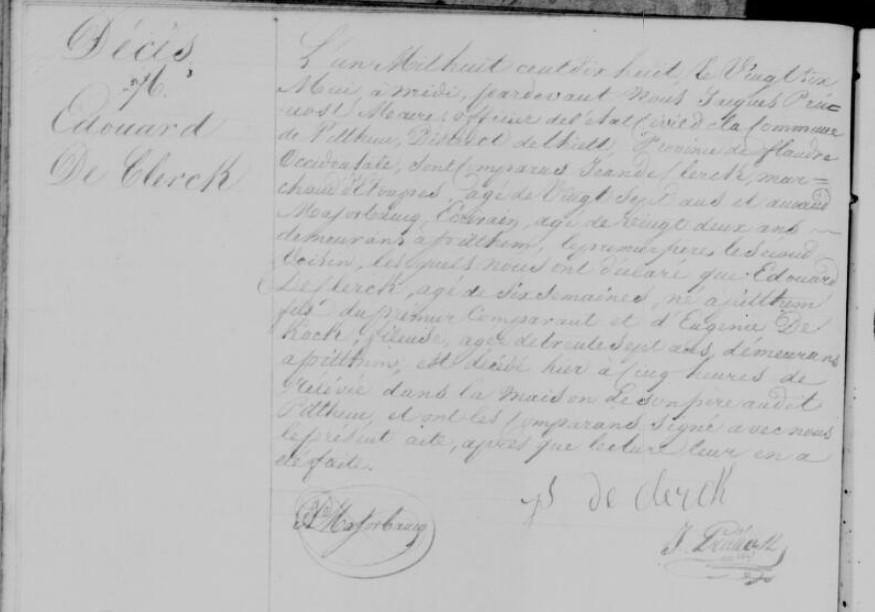 Décès
Edouard
De Clerck
L'an Mil huit cent dix huit, le Vingt six
Mai, à midi, pardevant Nous Jacques Pré=
vost Maire, officier de l'etat Civil de la Commune
de Pitthem, District de thielt, Province de flandre
Occidentale, sont Comparus Jean de Clerck, mar=
chand d'étoupes, agé de Vingt Sept ans et
Majorbancq, Ecrivain, agé de vingt deux ans
demeurans a pitthem, le premier pere, le Second
Voisin, lesquels nous ont déclaré que Edouard
De Clerck, agé de Six Semaines, né a pitthem
fils du premier Comparant et d'Eugenie De
Kock, fileuse, agée de trente Sept ans, démeurans
a pitthem, est décédé hier à Cinq heures de
relévée dans la maison de son pere audit
Pitthem, et ont les Comparans Signé avec nous
le présent acte, après que lecture leur en a
été faite.
de clerck
Majorbancq